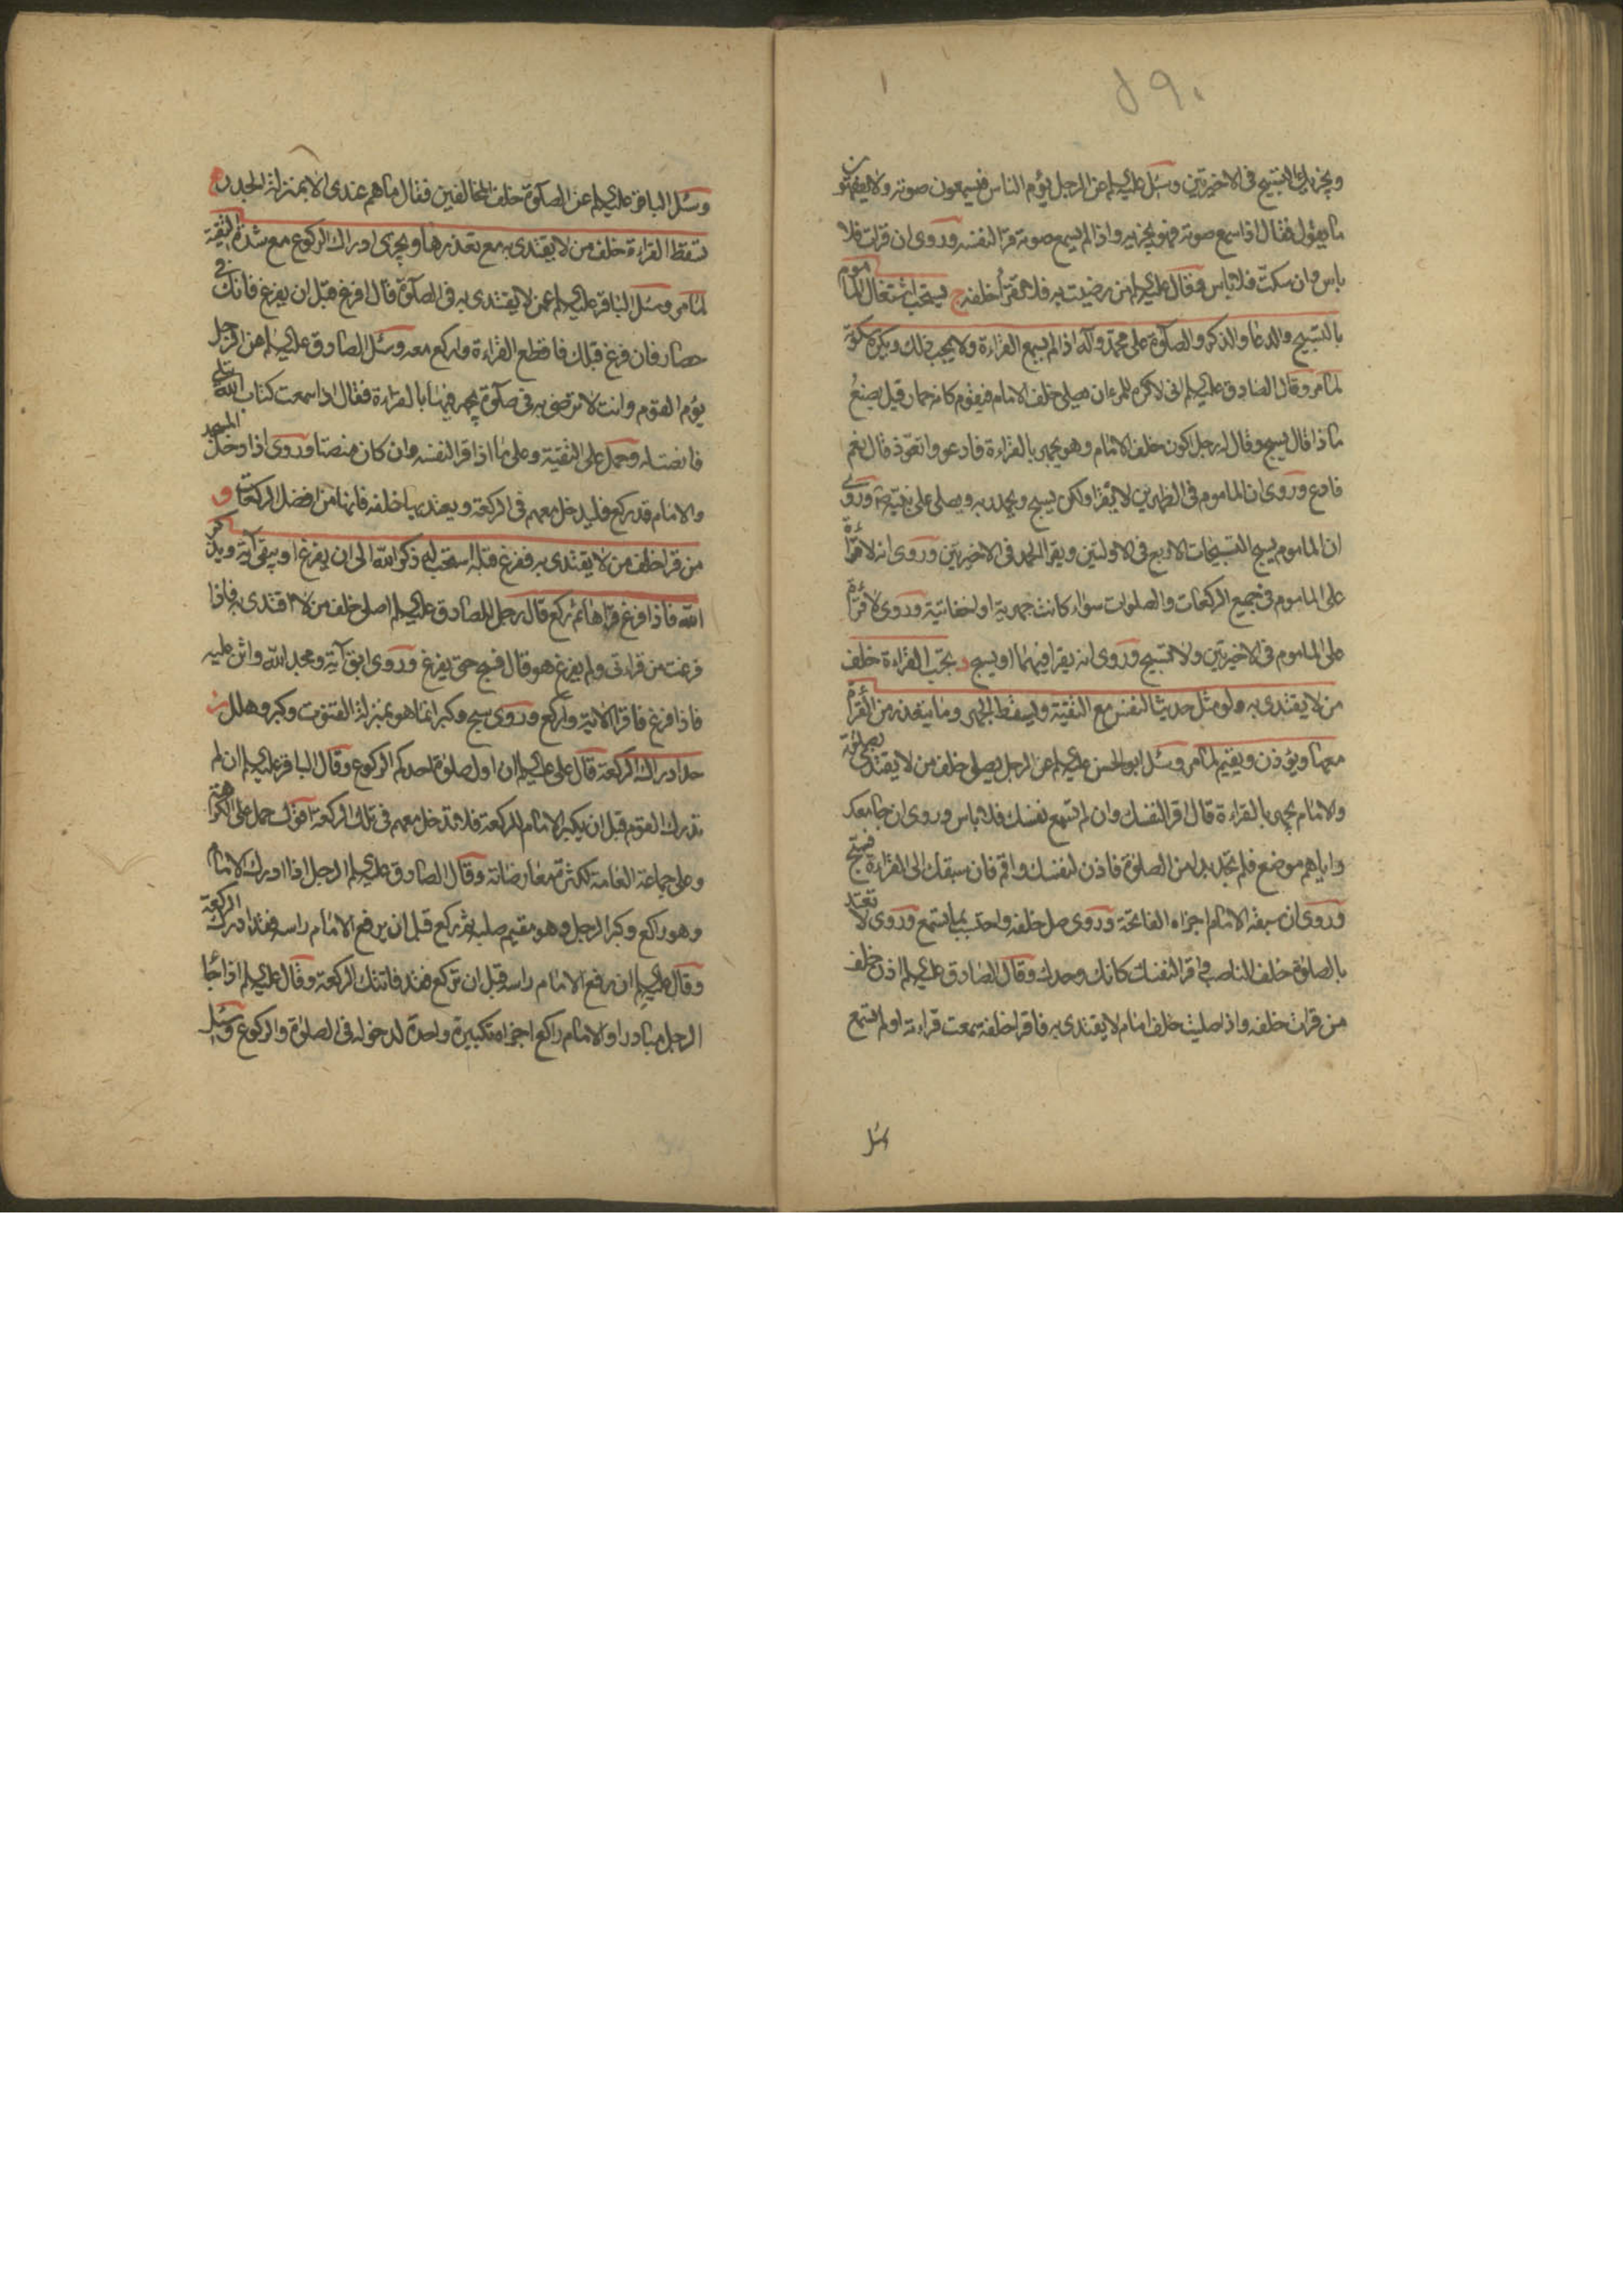 ٥٩٠
١
ويجزيك التسبيح في الاخيرتين وسئل عليه السلم عن الرجل يؤم الناس فيسمعون صوته ولا يفقهون
ما يقول فقال اذا سمع صوته فهو يجزيه واذا لم يسمع صوته قرا لنفسه وروى ان قرات فلا
باس وان سكت فلا باس فقال عليه السلم من رضيت به فلا تقرأ خلفه ج يستحب اشتغال الماموم
بالتسبيح والدعا والذكر والصلوة على محمد وآله اذا لم يسمع القراءة ولا يجب ذلك ويكره سكوته
لمامر وقال الصادق عليه السلم انى لاكره للمرء ان يصلى خلف الامام فيقوم كانه حمار قيل يصنع
ماذا قال يسبح وقال له رجل اكون خلف الامام وهو يجهر بالقراءة فادعو واتعوذ قال نعم
فادع وروى ان الماموم في الظهرين لا يقرا ولكن يسبح ويحمد ربه ويصلى على نبيه ص وروى
ان الماموم يسبح التسبيحات الاربع في الاولتين ويقرا الحمد في الاخيرتين وروى انه لا قراءة
على الماموم في جميع الركعات والصلوات سواء كانت جهرية او اخفاتية وروى لا قراءة
على الماموم في الاخيرتين ولا تسبيح وروى انه يقرا فيهما او يسبح د يجب القراءة خلف
من لا يقتدى به ولو مثل حديث النفس مع التقية ويسقط الجهر وما يتعذر من القراءة
معها ويؤذن ويقيم لمامر وسئل ابو الحسن عليه السلم عن الرجل يصلى خلف من لا يقتدى بصلوته
والامام يجهر بالقراءة قال اقرا لنفسك وان لم تسمع نفسك فلا باس وروى ان جامعك
واياهم موضع فلم تجد بدا من الصلوة فاذن لنفسك واقم فان سبقك الى القراءة فسبح
وروى ان سبقه الامام اجزاه الفاتحة وروى صل خلفه واحتسب بما تسمع وروى لا تعتد
بالصلوة خلف الناصب واقرا لنفسك كانك وحدك وقال الصادق عليه السلم اذن خلف
من قرات خلفه واذا صليت خلف امام لا يقتدى به فاقرا خلفه سمعت قراءته او لم تسمع
وسئل
وسئل الباقر عليه السلم عن الصلوة خلف المخالفين فقال ما هم عندى الا بمنزلة الجدر ه
تسقط القراءة خلف من لا يقتدى به مع تعذرها ويجزى ادراك الركوع مع شدة التقية
لمامر وسئل الباقر عليه السلم عمن لا يقتدى به في الصلوة قال افرغ قبل ان يفرغ فانك في
حصار فان فرغ قبلك فاقطع القراءة واركع معه وسئل الصادق عليه السلم عن الرجل
يؤم القوم وانت لا ترضى به في صلوة يجهر فيها بالقراءة فقال اذا سمعت كتاب الله يتلى
فانصت له وحمل على التقية وعلى ما اذا قرا لنفسه وان كان منصتا وروى اذا دخل المسجد
والامام قد ركع فليدخل معهم في الركعة ويعتد بها خلفه فانها من افضل الركعات و
من قرا خلف من لا يقتدى به ففرغ قبله استحب له ذكر الله الى ان يفرغ او يبقى آية ويذكر
الله فاذا فرغ قراها ثم ركع قال رجل للصادق عليه السلم اصلى خلف من لا اقتدى به فاذا
فرغت من قراءتى ولم يفرغ هو قال فسبح حتى يفرغ وروى ابق آية ومجد الله واثن عليه
فاذا فرغ فاقرا الاية واركع وروى سبح وكبر انما هو بمنزلة القنوت وكبر وهلل ز
حد ادراك الركعة قال على عليه السلم ان اول صلوة احدكم الركوع وقال الباقر عليه السلم ان لم
تدرك القوم قبل ان يكبر الامام للركعة فلا تدخل معهم في تلك الركعة اقول حمل على الكراهة
وعلى جماعة العامة لكثرة معارضاته وقال الصادق عليه السلم الرجل اذا ادرك الامام
وهو راكع وكبر الرجل وهو مقيم صلبه ثم ركع قبل ان يرفع الامام راسه فقد ادرك الركعة
وقال عليه السلم ان رفع الامام راسه قبل ان تركع فقد فاتتك الركعة وقال عليه السلم اذا جاء
الرجل مبادرا والامام راكع اجزاه تكبيرة واحدة لدخوله في الصلوة والركوع وسئل